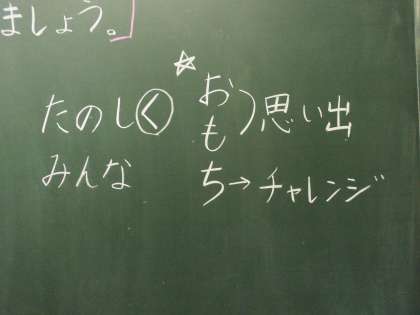 ましょう。」
☆
たのしく おも)思い出
みんな ち→チャレンジ